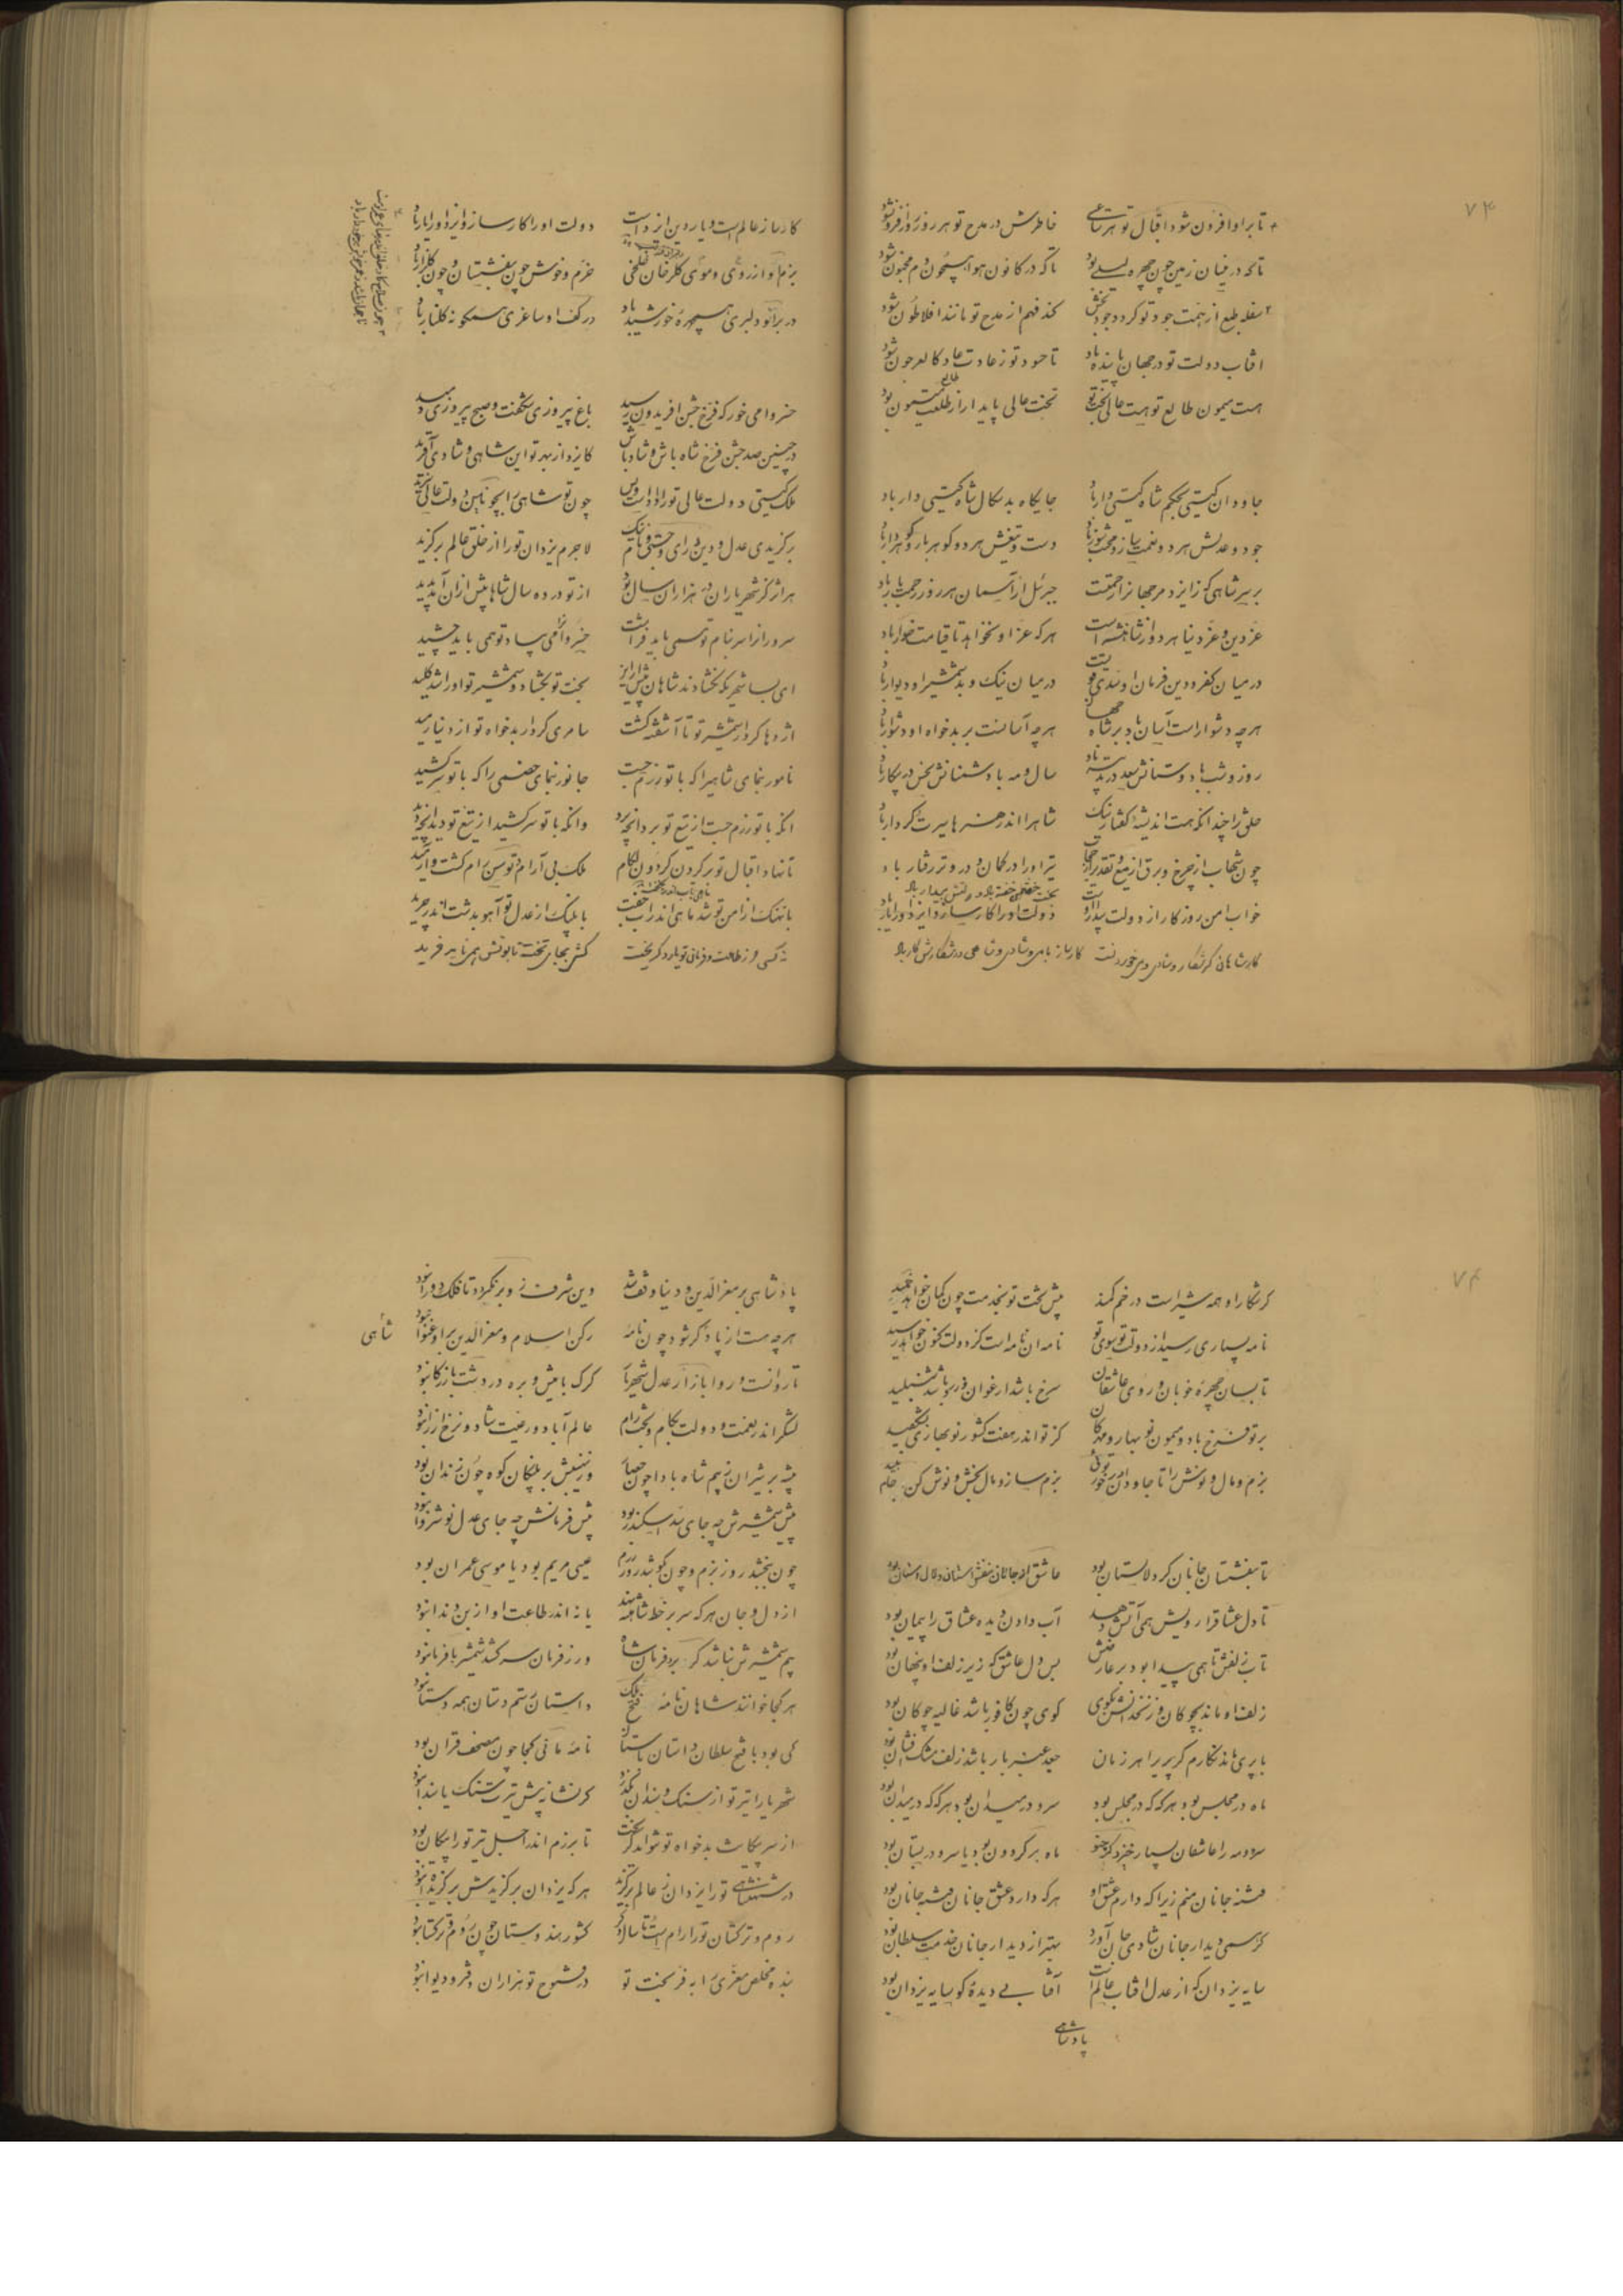 ۷۴
تا بر او افزون شود اقبال تو هر ساعتی خاطرش در مدح تو هر روز روز افزون شود
تا که در نیسان زمین چون چهره لیلی بود تا که در کانون هوا همچون دم مجنون شود
سفله طبع از همت جود تو گردد جود بخش کند فهم از مدح تو مانند افلاطون شود
افتاب دولت تو در جهان پاینده باد تا حسود تو ز عادت عاد کالعرجون شود
هست میمون طالع تو هست عالی تخت تو تخت عالی پایدار از طلعت میمون بود
طالع
جاودان گیتی بحکم شاه گیتی دار باد جایگاه بدسگال شاه گیتی دار باد
جود و عدلش هر دو نعمت ساز و محنت سوز باد دست و تیغش هر دو گوهر بار و گوهردار باد
بر سر شاهی که ز ایزد مر جهانرا رحمتست جبرئیل از آسمان هر روز رحمت بار باد
عز دین و عز دنیا هر دو از شاهنشه است هر که عز او نخواهد تا قیامت خوار باد
در میان کفر و دین فرمان او سدی قویست در میان نیک و بد شمشیر او دیوار باد
هرچه دشوار است آسان باد بر شاه جهان هرچه آسانست بر بدخواه او دشوار باد
روز و شب با دوستانش سعد در پیوسته باد سال و مه با دشمنانش نحس در پیکار باد
خلق را چندانکه هست اندیشه گفتار نیک شاه را اندر هنرها سیرت و کردار باد
چون شهاب از چرخ و برق از میغ و تقدیر از حجاب تیر او را در کمان و در و تر رفتار باد
خواب امن روزگار از دولت بیدار اوست دولت او را کارساز و ایزد او را یار باد
کار شاهان گر شکار و شادی و می خوردنست کار ساز باده و شادی و شاهی در شکارش کار باد
کارساز عالم است و یار دین ایزد است دولت او را کارساز و ایزد او را یار باد
بزم او از روی و موی گلرخان خلخی خرم و خوش چون بنفشستان و چون گلزار باد
در بر او دلبری همچهره خورشید باد در کف او ساغری همگونه گلنار باد
خسروا می خور که فرخ جشن افریدون رسید باغ پیروزی شکفت و صبح پیروزی دمید
در چنین صد جشن فرخ شاه باش و شاد باش کایزد از بهر تو این شاهی و شادی آفرید
ملک گیتی دولت عالی تو را داد است و بس چون تو شاهی را بچونین دولت عالی سزید
برگزیدی عدل و دین و رای و خشنودی و نام نیک لاجرم یزدان تو را از خلق عالم برگزید
هر اثر کز شهریاران در هزاران سال بود از تو در ده سال شاها بیش از ان آمد پدید
سرور از سر بنام تو همی باید فراشت خسروا می بیاد تو همی باید چشید
ای بسا شهریکه نگشادند شاهان پیش ازین بخت تو بگشاد و شمشیر تو او را شد کلید
اژدها کردار شمشیر تو تا آشفته گشت سامری کردار بدخواه تو از دنیا رمید
نامور ننمای شاهی را که با تو رزم جست جانور ننمای خصمی را که با تو سر کشید
انکه با تو رزم جست از تیغ تو برد انچه برد وانکه با تو سر کشید از تیغ تو دید انچه دید
تا نهاد اقبال تو بر گردن گردون لگام ملک بی آرام و توسن رام گشت و آرمید
با نهنگ از امن تو شد ماهی اندر آب جفت با پلنگ از عدل تو آهو بدشت اندر چرید
نه کسی کز طاعت و فرمان تو یارد گریخت کش بجای تخت تابوتش همی باید خرید
۷۴
گر شکار او همه شیر است در خم کمند پیش تخت تو بخدمت چون کمان خواهد خمید
نامه بسیاری رسید از دولت تو سوی تو نامه ان نامه است کز دولت کنون خواهد رسید
تا بسان چهره خوبان و روی عاشقان سرخ باشد ارغوان و زرد باشد شنبلید
بر تو فرخ باد و میمون نوبهار و مهرگان کز تو اندر هفت کشور نوبهاری بشکفید
بزم و مال و نوش را تا جاودان در خور توئی بزم ساز و مال بخش و نوش کن جام نبید
تا بنفشستان جانان گرد لالستان بود عاشق او جانان بنفشستان و لالستان بود
تا دل عشاق را رویش همی آتش دهد آب دادن دیده عشاق را پیمان بود
تاب زلفش تا همی پیدا بود بر عارضش بس دل عاشق که زیر زلف او پنهان بود
زلف او ماند بچوگان و زنخدانش بگوی گوی چون کافور باشد غالیه چوگان بود
با پری ماند نگارم گر پری را هر زمان جعد عنبر بار باشد زلف مشک افشان بود
ماه در مجلس بود هر گه که در مجلس بود سرو در میدان بود هر گه که در میدان بود
سرو و مه را عاشقان بسیار خیزد گر چنو ماه بر گردون بود یا سرو در بستان بود
فتنه جانان منم زیرا که دارم عشق او هر که دارد عشق جانان فتنه جانان بود
گر همی دیدار جانان شادی جان آورد بهتر از دیدار جانان خدمت سلطان بود
سایه یزدان که از عدل افتاب عالم است آفتابی دیدهٔ کو سایه یزدان بود
پادشاهی
پادشاهی بر معزالدین و دنیا وقف شد وین شرف زو بر نگردد تا فلک دوران بود
هرچه هست از پادشاهی ذکر شود چون نامه رکن اسلام و معزالدین بر او عنوان بود
شاهی
تا روانست و روا بازار عدل شهریار گرگ با میش و بره در دشت بازرگان بود
لشکر اندر نعمت و دولت بکام و بخت رام عالم آباد و رعیت شاد و نرخ ارزان بود
بیشه بر شیران ز بیم شاه باد چون حصار وز نهیبش بر پلنگان کوه چون زندان بود
پیش شمشیرش چه جای سد اسکندر بود پیش فرمانش چه جای عدل نوشروان بود
چون ببخشد روز بزم و چون بکوشد روز رزم عیسی مریم بود یا موسی عمران بود
از دل و جان هر که سر بر خط شاهنشه نهد یا نه اندر طاعت او از بن دندان بود
بیم شمشیرش نباشد گر برد فرمان شاه ور ز فرمان سر کشد شمشیر با فرمان بود
هر کجا خوانند شاهان نامه فتح ملک داستان رستم دستان همه دستان بود
کی بود با فتح سلطان داستان باستان نامه مانی کجا چون مصحف قران بود
شهریارا تیر تو از سنگ و سندان بگذرد گر نشانه پیش تیرت سنگ یا سندان بود
از سر پیکانت بدخواه تو نتواند گریخت تا برزم اندر اجل تیر تو را پیکان بود
در شهنشاهی تو را یزدان ز عالم برگزید هر که یزدان برگزیدش برگزیده آن بود
روم و ترکستان تو را رام است تا سال دگر کشور هندوستان چون روم و ترکستان بود
بنده مخلص معزی را به فر بخت تو در فتوح تو هزاران دفتر و دیوان بود